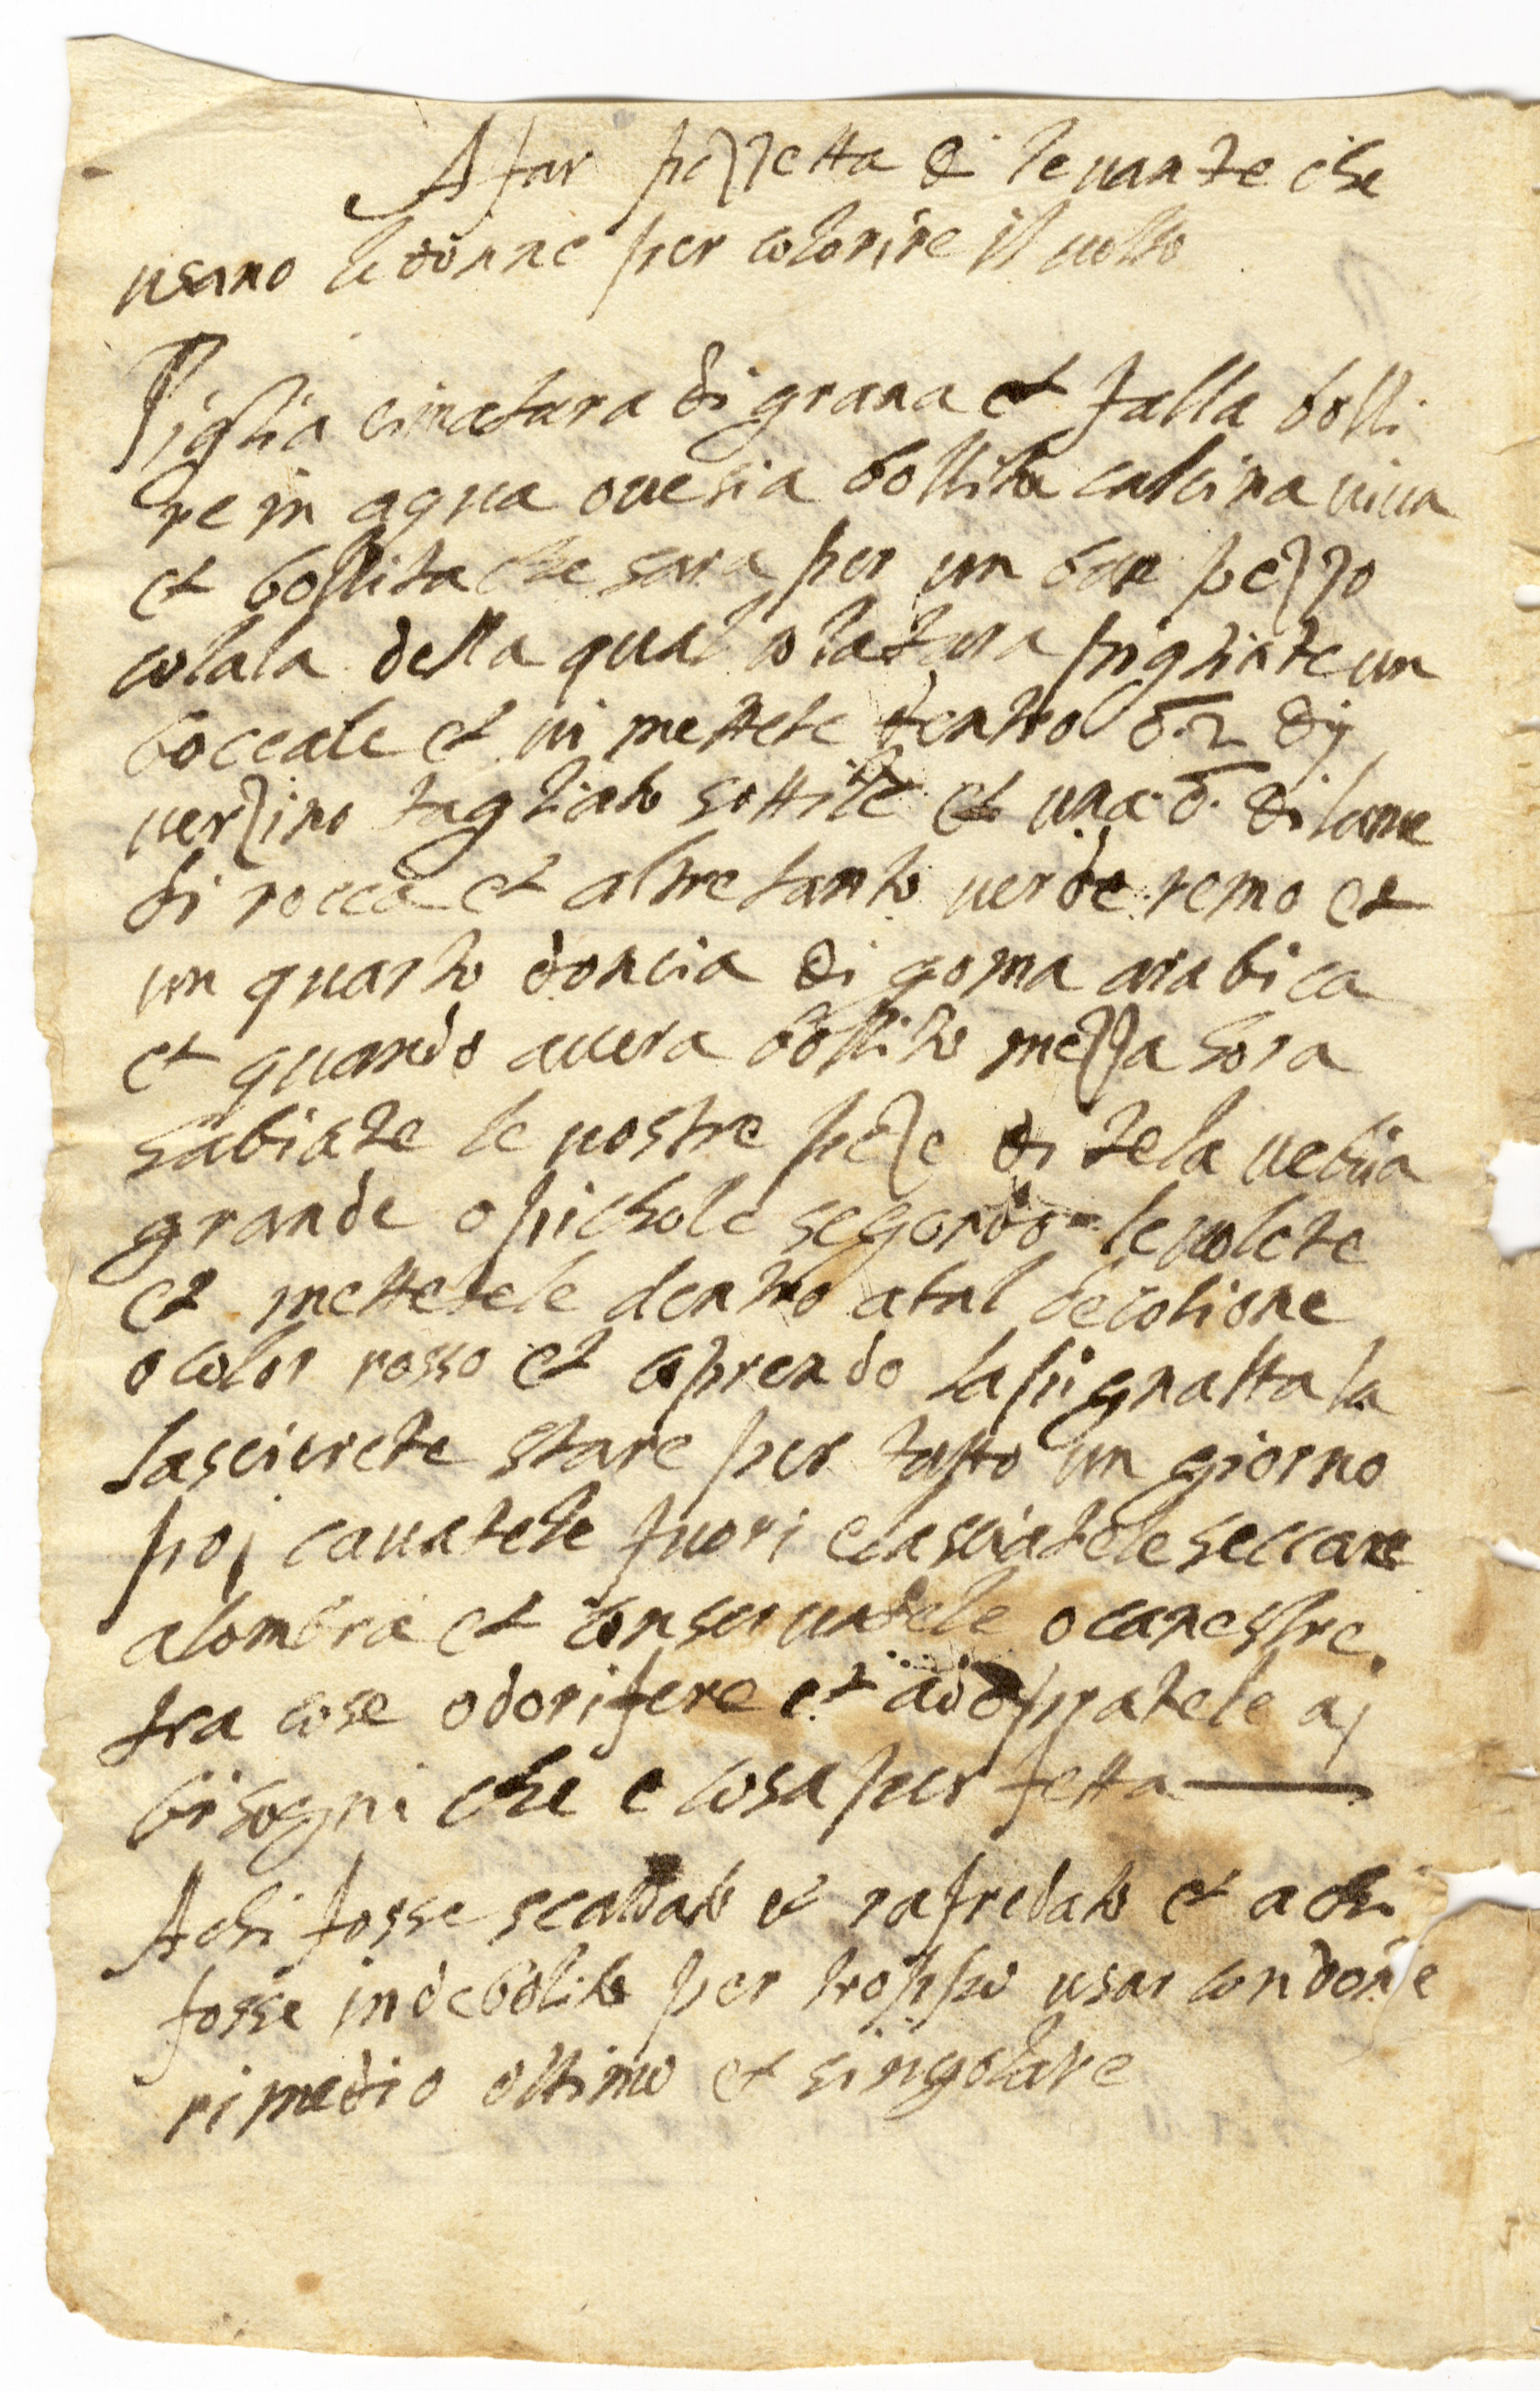 A far pezzetta di levante che
usano le donne per colorire il volto
Piglia cimatura di grana et falla bolli
re in aqua ove sia bollita calcina viva
et bollita che sara per un bon pezzo
colala della qual colatura pigliate un
boccale et vi mettete dentro δ. 2 di
verzino tagliato sottile et una δ. di lume
di rocca et altretanto verde remo et
un quarto doncia di goma arabica
et quando avera bollito mezza hora
habiate le vostre peze di tela vechia
grande o pichole segondo le volete
et mettetele dentro a tal decotione
o color rosso et coprendo la pignatta la
lascierete stare per tutto un giorno
poi cavatele fuori e lasciatele seccare
a lombra et conservatele o canestre
tra cose odorifere et adopratele ai
bisogni che e cosa perfetta
A chi fosse scaldato et rafredato et a chi
fosse indebolito per troppo usar con donne
rimedio ottimo et singolare